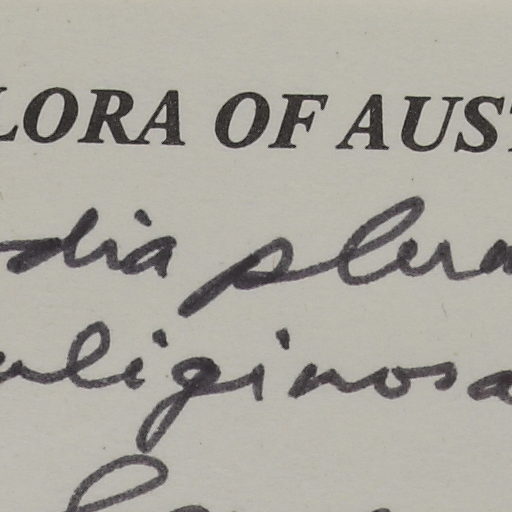 LORA OF AUS
dia plura
uliginosa